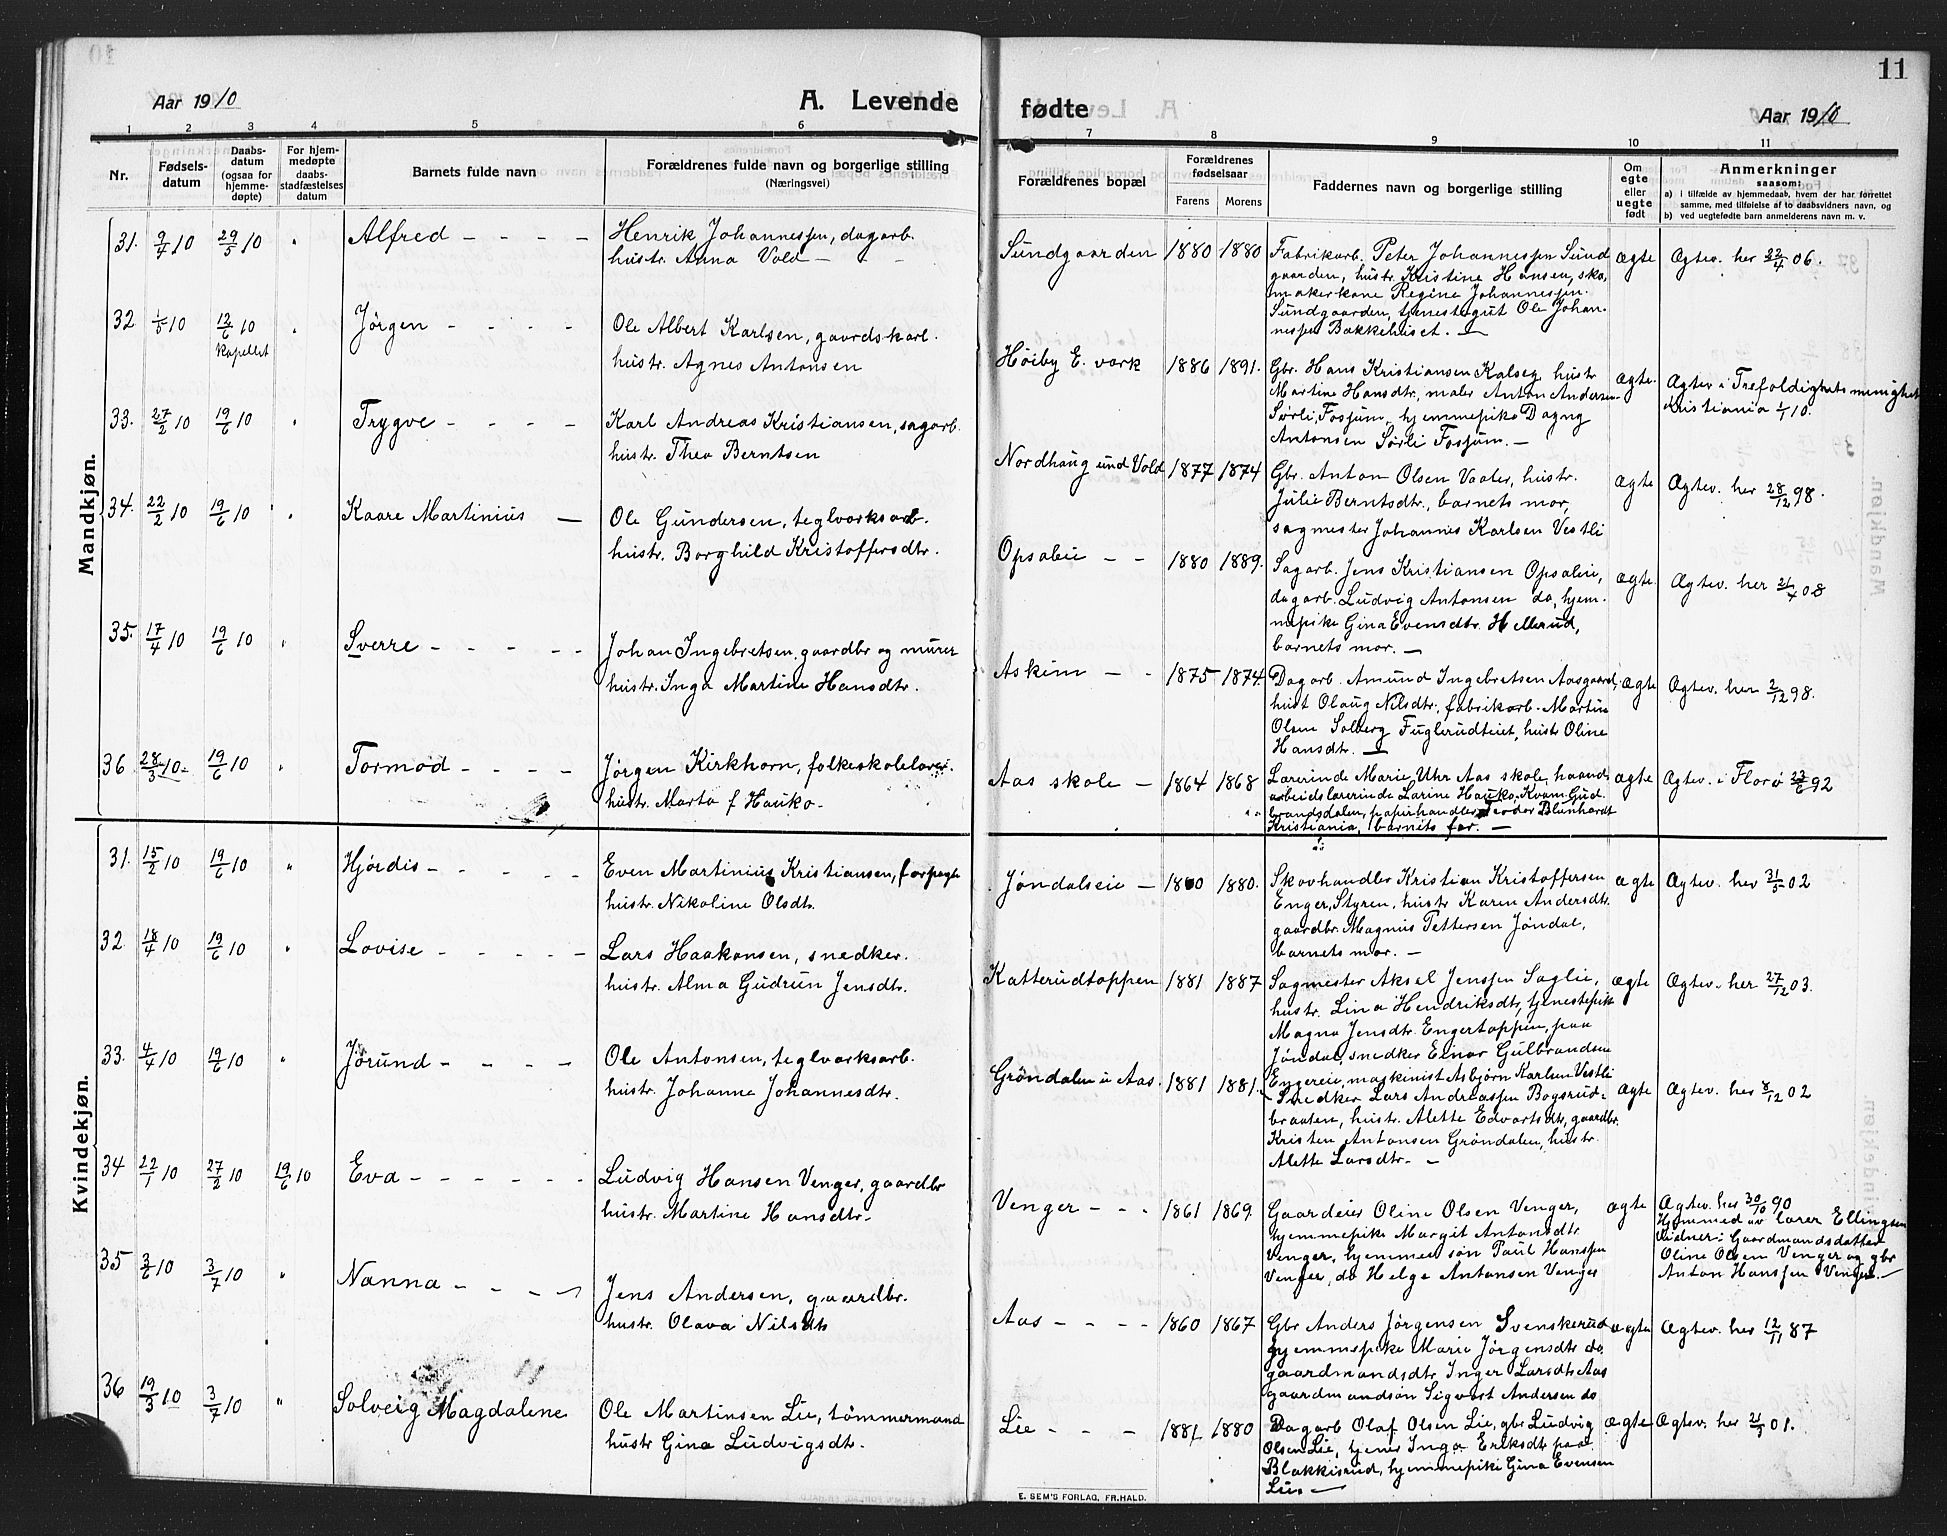 Aar 1910
A. Levende
1 2 3 4 5 6
Nr.
Fødsels-
datum
Daabs-
datum
(ogsaa for
hjemme-
døpte)
For hjem-
medøpte
daabs-
stadfæstelses
datum
Barnets fulde navn
Forældrenes fulde navn og borgerlige stilling
(Næringsvei)
Mandkjøn.
31. 9/4 10 29/5 10 " Alfred - - - -
Henrik Johannessen, dagarb.
hustr. Anna Vold -
32 1/5 10 12/6 10 " Jørgen - - - -
kapellet
Ole Albert Karlsen, gaardskarl.
hustr. Agnes Antonsen
33. 27/2 10 19/6 10 " Trygve - - - -
Karl Andreas Kristiansen, sagarb.
hustr. Thea Berntsen
34. 22/2 10 19/6 10 " Kaare Martinius -
Ole Gundersen, teglverksarb.
hustr. Borghild Kristoffersdtr.
35. 17/4 10 19/6 10 " Sverre - - - - -
Johan Ingebretsen, gaardbr og murer
hustr. Inga Martine Hansdtr.
36 28/3 10 19/6 10 " Tormod - - - -
Jørgen Kirkhorn, folkeskolelærer.
hustr. Marta f Hauko -
Kvindekjøn.
31. 15/2 10 19/6 10 " Hjørdis - - - - -
Even Martinius Kristiansen, forpagte
hustr. Nikoline Olsdtr.
32 18/4 10 19/6 10 " Lovise - - - - -
Lars Haakonsen, snedker.
hustr. Alma Gudrun Jensdtr.
33. 4/4 10 19/6 10 " Jørund - - - -
Ole Antonsen, teglverksarb.
hustr. Johanne Johannesdtr.
34 22/1 10 27/2 10 19/6 10 Eva - - - - - -
Ludvig Hansen Venger, gaardbr
hustr. Martine Hansdtr -
35 3/6 10 3/7 10 " Nanna - - - -
Jens Andersen, gaardbr.
hustr. Olava Nilsdtr
36 19/3 10 3/7 10 " Solveig Magdalene
Ole Martinsen Lie, tømmermand
hustr Gina Ludvigsdtr.
11
fødte
Aar 1910
7 8 9 10 11
Forældrenes bopæl
Forældrenes
fødselsaar
Farens Morens
Faddernes navn og borgerlige stilling
Om
egte
eller
uegte
født
Anmerkninger
saasom:
a) i tilfælde av hjemmedaab, hvem der har forrettet
samme, med tilføielse af to daabsvidners navn, og
b) ved uegtefødte barn anmelderens navn m. v.
Sundgaarden 1880 1880 Fabrikarb. Peter Johannessen Sund
gaarden, hustr. Kristine Hansen, sko,
makerkone Regine Johannessen.
Sundgaarden, tjenestegut Ole Johan-
nessen Bakkehuset. -
ægte Ægtev. her 22/4 06.
Høiby E. verk 1886 1891. Gbr. Hans Kristiansen Kalseg, hustr
Martine Hansdtr, maler Anton Andersen
Sørli, Fossum, hjemmepike Dagny
Antonsen Sørli Fossum. -
ægte. Ægtev i Trefoldighetsmenighet
Kristiania 1/1 10.
Nordhaug und Vold 1877 1874 Gbr. Anton Olsen Vaaler, hustr.
Julie Berntsdtr, barnets mor,
sagmester Johannes Karlsen Vestli
ægte Ægtev. her 28/12 98.
Opsaleie - - 1880 1889. Sagarb. Jens Kristiansen Opsaleie,
dagarb. Ludvig Antonsen do, hjem-
mepike Gina Evensdtr. Hellerud,
barnets mor. -
ægte. Ægtev. her 21/4 08
Askim - - 1875 1874 Dagarb. Amund Ingebretsen Aasgaard,
hust Olaug Nilsdtr., fabrikarb. Martin
Olsen Solberg Fuglerudteiet, hustr Oline
Hansdtr. -
ægte Ægtev. her 2/12 98.
Aas skole - 1864 1868 Lærerinde Marie Uhr Aas skole, haand
arbeidslærerinde Larine Hauko, Kvam Gud
brandsdalen, papirhandler Teodor Blunhardt
Kristiania, barnets far. -
ægte Ægtev. i Florø 23/6 92
Jøndalseie - 1880 1880. Skovhandler Kristian Kristoffersen
Enger, Styren, hustr Karen Andersdtr.
gaardbr. Magnus Pettersen Jøndal,
barnets mor. -
ægte Ægtev. her 31/5 02
Katterudtoppen 1881 1887 Sagmester Aksel Jenssen Saglie,
hustr. Lina Hendriksdtr, tjenestepik
Magna Jensdtr. Engertoppen, paa
Jøndal, snedker Einar Gulbrandsen
Engereie, maskinist Asbjørn Karlsen Vestli
ægte Ægtev. her 27/12 03.
Grøndalen u Aas. 1881 1881. Snedker Lars Andreassen Bøgsrud-
braaten, hustr. Alette Edvartsdtr, gaardbr.
Kristen Antonsen Grøndalen, hustr.
Alette Larsdtr. -
ægte Ægtev. her 8/12 02
Venger - - - 1861 1869 Gaardeier Oline Olsen Venger,
hjemmepike Margit Antonsdtr
Venger, hjemmev. søn Paul Hanssen
Venger, do Helge Antonsen Venger
ægte Ægtev. her 30/10 90
Hjemmed av lærer Ellingsen
Vidner: Gaardmandsdatter
Oline Olsen Venger og gbr
Anton Hanssen Venger. -
Aas - - - - 1860 1867 Gbr Anders Jørgensen Svenskerud
hjemmepike Marie Jørgensdtr do
gaardmandsdtr Inger Larsdtr Aas
gaardmandsøn Sigvart Andersen do
ægte Ægtev. her 12/11 87
Lie - - - 1881 1880 Dagarb Olaf Olsen Lie, gbr Ludvig
Olsen Lie, tjener Inga Eriksdtr paa
Blakkisrud, hjemmepike Gina Evensen
Lie -
ægte Ægtev. her 01.
E. SEM'S FORLAG, FR.HALD.